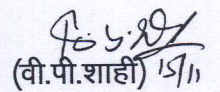 (वी.पी.शाही) 15/11